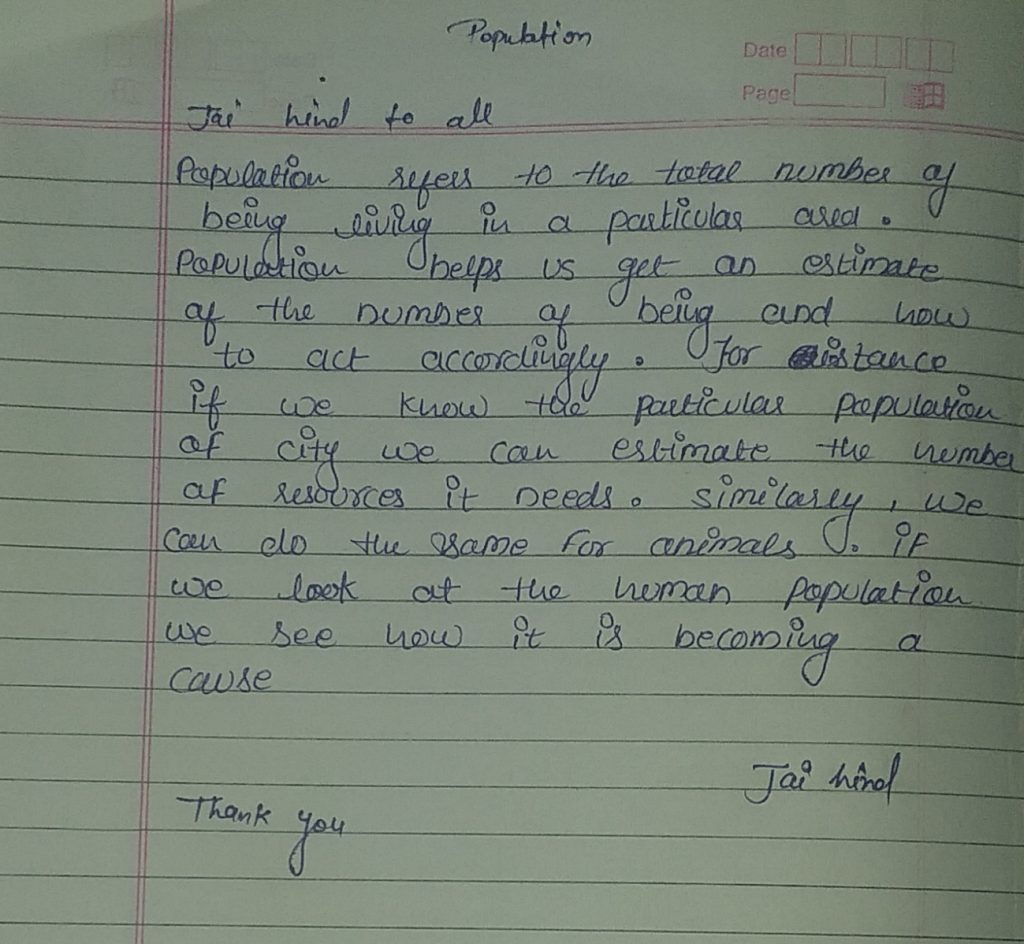 Population
Date
Page
Jai hind to all
Population refers to the total number of
being living in a particular area.
Population helps us get an estimate
of the number of being and how
to act accordingly. For istance
if we know the particular population
of city we can estimate the number
of resources it needs. similarly, we
can do the same for animals. if
we look at the human population
we see how it is becoming a
cause
Jai hind
Thank you